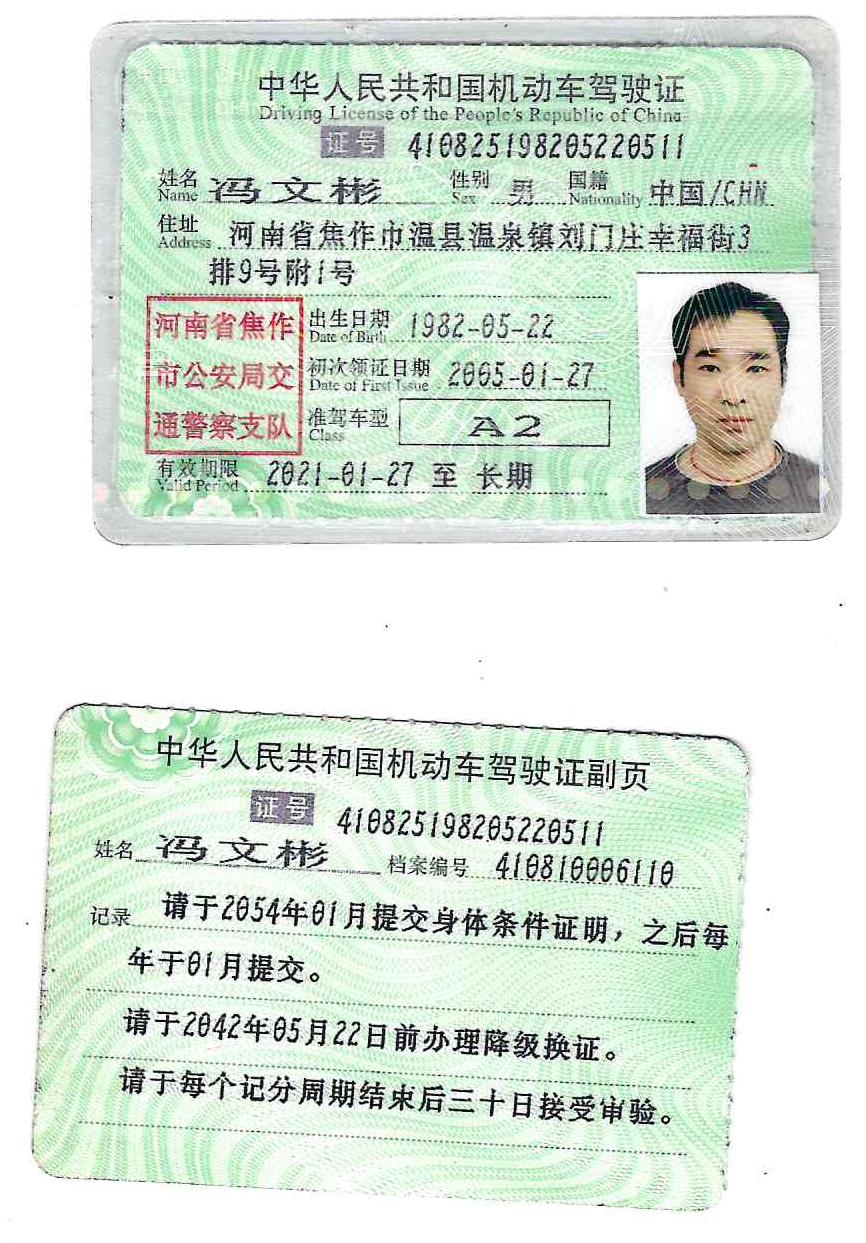 中华人民共和国机动车驾驶证
Driving License of the People's Republic of China
证号 410825198205220511
姓名 Name 冯文彬 性别 Sex 男 国籍 Nationality 中国/CHN
住址 Address 河南省焦作市温县温泉镇刘门庄幸福街3
排9号附1号
河南省焦作
市公安局交
通警察支队
出生日期 Date of Birth 1982-05-22
初次领证日期 Date of First Issue 2005-01-27
准驾车型 Class A2
有效期限 Valid Period 2021-01-27 至 长期
中华人民共和国机动车驾驶证副页
证号 410825198205220511
姓名 冯文彬 档案编号 410810006110
记录 请于2054年01月提交身体条件证明，之后每
年于01月提交。
请于2042年05月22日前办理降级换证。
请于每个记分周期结束后三十日接受审验。